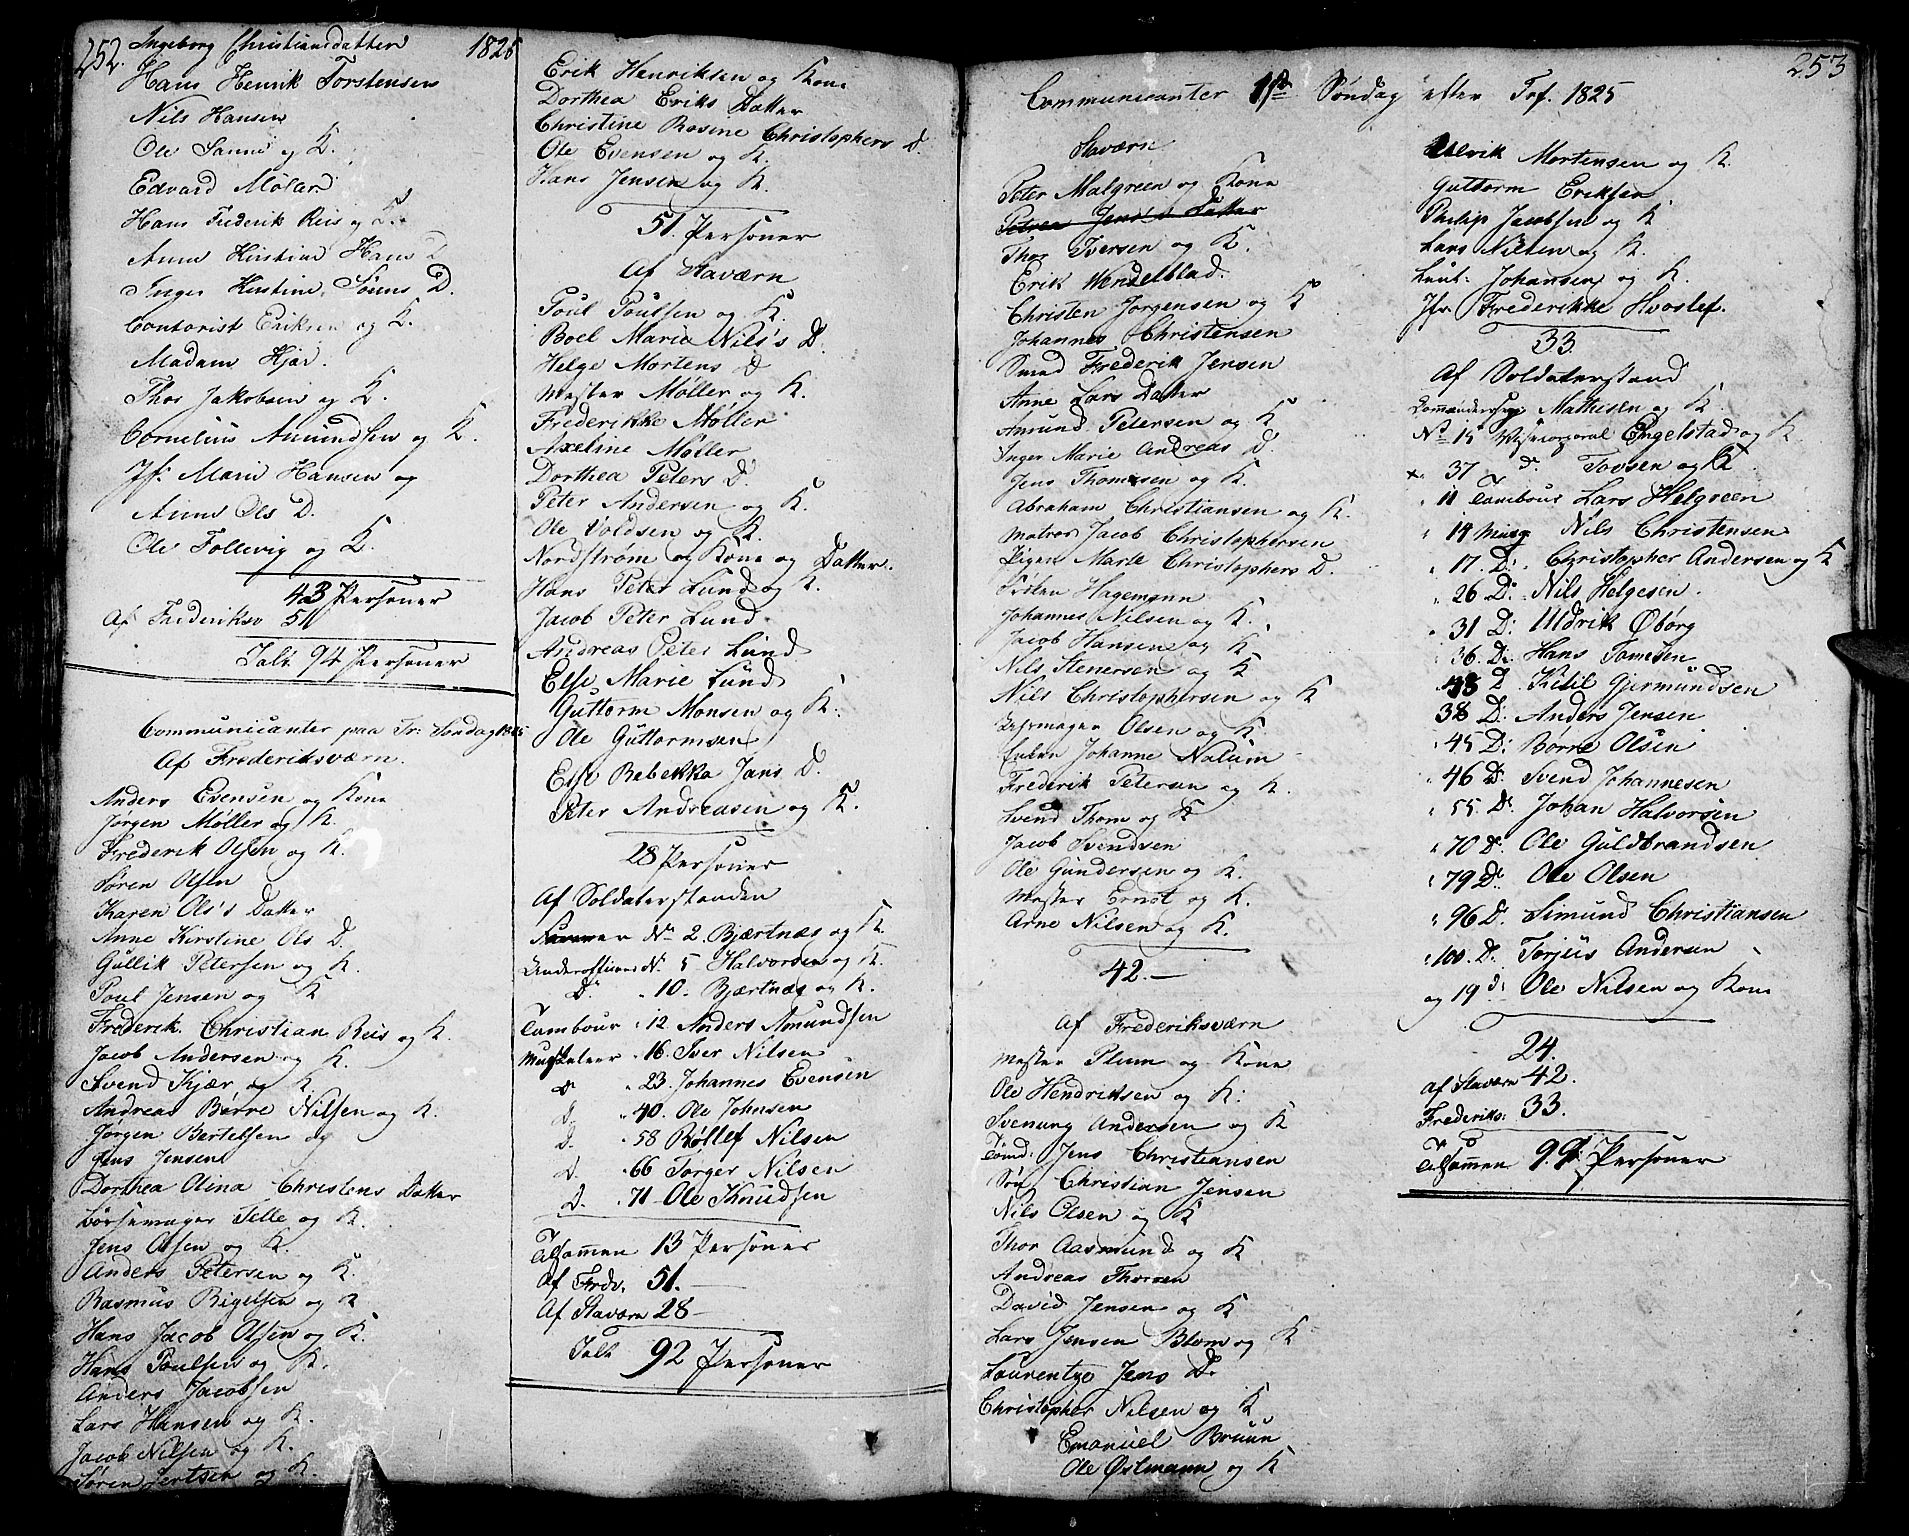 252.
Ingeborg Christiansdatter 1825
Hans Henrik Torstensen
Nils Hansen
Ole Sanne og K.
Edvard Møler
Hans Frederik Reis og K.
Anne Kirstine Hans D
Inger Kirstine Sørens D.
Contorist Eriksen og K.
Madam Kjær.
Thor Jakobsen og K.
Cornelius Amundsen og K.
Jfr. Marie Hansen og
Anne Ols D.
Ole Follevig og K.
43 Personer
Af Frederiksv 51
Ialt 94 Personer
Communicanter paa Tr: Søndag 1825
Af Frederiksværn.
Anders Evensen og Kone
Jørgen Møller og K.
Frederik Olsen og K.
Søren Olsen
Karen Ols's Datter
Anne Kirstine Ols D.
Gullik Petersen og K.
Poul Jensen og K
Frederik Christian Reis og K.
Jacob Andersen og K.
Svend Kjær og K.
Andreas Børre Nilsen og K.
Jørgen Bertelsen og
Jens Jensen
Dorthea Olina Christens Datter
Børsemager Telle og K.
Jens Olsen og K.
Anders Petersen og K.
Rasmus Bigelsen og K
Hans Jacob Olsen og K.
Hans Poulsen og K.
Anders Jacobsen
Lars Hansen og K.
Jacob Nilsen og K.
Søren og K.
Erik Henriksen og Kone
Dorthea Eriks Datter
Christine Rosine Christophers D.
Ole Evensen og K.
Hans Jensen og K.
51. Personer
Af Staværn
Poul Poulsen og K.
Boel Marie Nils's D.
Helge Mortens D
Mester Møller og K.
Frederikke Møller
Axeline Møller
Dorthea Peters D.
Peter Andersen og K.
Ole Voldsen og K.
Nordstrøm og Kone og Datter.
Hans Peter Lund og K.
Jacob Peter Lund
Andreas Peter Lund
Else Marie Lund
Guttorm Monsen og K.
Ole Guttormsen
Else Rebekka Jans D.
Peter Andreasen og K.
28 Personer
Af Soldaterstanden
No. 2. Bjærtnæs og K.
Underofficeer N. 5 Halvorsen og K.
Do " 10. Bjærtnæs og K.
Tambour " 12. Anders Amundsen
Musketeer " 16. Iver Nilsen
D " 23. Johannes Evensen
D. " 40. Ole Johnsen
D. " 58 Rollef Nilsen
D. " 66 Torger Nilsen
D. " 71 Ole Knudsen
Tilsammen 13 Personer
Af Frdv. 51.
Af Staværn 28
Ialt 92 Personer
253
Communicanter 1ste Søndag efter Tref. 1825
Staværn
Peter Malgreen og Kone
Petrea Jens's Datter
Thor Iversen og K.
Erik Wendelblad.
Christen Jørgensen og K
Johannes Christensen
Smed Frederik Jensen
Anne Lars Datter
Amund Petersen og K
Inger Marie Andreas D.
Jens Thomesen og K.
Abraham Christiansen og K.
Matros Jacob Christophersen
Pigen Marte Christophers D.
Hagemann
Johannes Nilsen og K.
Jacob Hansen og K
Nils Stenersen og K
Nils Christophersen og K
Olsen og K
Enken Johanne Nalum
Frederik Petersen og K.
Svend Thom og K
Jacob Svendsen
Ole Gundersen og K.
Mester Ernst og K.
Arne Nilsen og K.
42.
Af Frederiksværn
Mester Plum og Kone
Ole Hendriksen og K:
Svenung Andersen og K
Tømd: Jens Christiansen
Søn Christian Jensen
Nils Olsen og K
Thor Aasmund og K
Andreas Thorsen
David Jensen og K
Lars Jensen Blom og K
Laurentze Jens D.
Christopher Nilsen og K
Emanuel Bruun
Ole Østmann og K
Ulrik Mortensen og K.
Guttorm Eriksen
Philip Jacobsen og K
Lars Nilsen og K.
Lieut: Johansen og K.
Jfr. Frederikke Hvoslef.
33.
Af Soldaterstand
Comandersergt Mathisen og K
No 15 Vicecorporal Engelstad og K
37 Do. Tovsen og K
" 11 Tambour Lars Helgreen
" 14 Musq Nils Christensen
" 17. D: Christopher Andersen og K
" 26 D: Nils Helgesen.
" 31 D: Uldrik Øborg
" 36. D: Hans Tomesen
38 D. Ketil Gjermundsen
38 D: Anders Jensen
" 45 D: Børre Olsen
" 46 D. Svend Johannesen
" 55. D. Johan Halvorsen
" 70 D. Ole Guldbrandsen
" 79 D. Ole Olsen
" 96 D. Simund Christiansen
" 100. D. Torjus Andersen
og 19 d: Ole Nilsen og Kone
24.
af Staværn 42.
Frederiks: 33.
Tilsammen 99. Personer